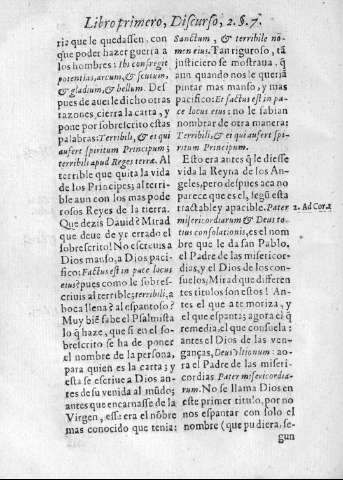 Libro primero, Discurso, 2. §. 7.
ria que le quedassen, con
que poder hazer guerra a
los hombres: Ibi confregit
potentias, arcum, & scutum,
& gladium, & bellum. Des
pues de auerle dicho otras
razones, cierra la carta, y
pone por sobrescrito estas
palabras: Terribili, & ei qui
aufert spiritum Principum;
terribili apud Reges terræ. Al
terrible que quita la vida
de los Principes; al terri-
ble aun con los mas pode
rosos Reyes de la tierra.
Que dezis Dauid? Mirad
que deue de yr errado el
sobrescrito! No escriuis a
Dios manso, a Dios paci-
fico: Factus est in pace locus
eius? pues como le sobres-
criuis al terrible; terribili, a
boca llena? al espantoso?
Muy biẽ sabe el Psalmista
lo q̃ haze, que si en el so-
brescrito se ha de poner
el nombre de la persona,
para quien es la carta; y
esta se escriue a Dios an-
tes de su venida al mũdo;
antes que encarnasse de la
Virgen, esse era el nõbre
mas conocido que tenia:
Sanctum, & terribile no-
men eius. Tan riguroso, tã
justiciero se mostraua, q̃
aun quando nos le querià
pintar mas manso, y mas
pacifico: Et factus est in pa-
ce locus eius: no le sabian
nombrar de otra manera:
Terribili, & ei qui aufert spi-
ritum Principum.
Esto era antes q̃ le diesse
vida la Reyna de los An-
geles, pero despues aca no
parece que es el, segũ esta
tractable y apacible. Pater
misericordiarum & Deus to-
tius consolationis, es el nom
bre que le da san Pablo,
el Padre de las misericor-
dias, y el Dios de los con-
suelos; Mirad que differen
tes titulos son estos! An-
tes el que atemoriza, y
el que espanta; agora el q̃
remedia, el que consuela:
antes el Dios de las ven-
ganças, Deus vltionum: ao-
ra el Padre de las miseri-
cordias Pater misericordia-
rum. No se llama Dios en
este primer titulo, por no
nos espantar con solo el
nombre (que pudiera, se-
gun
2. Ad Cor. 1